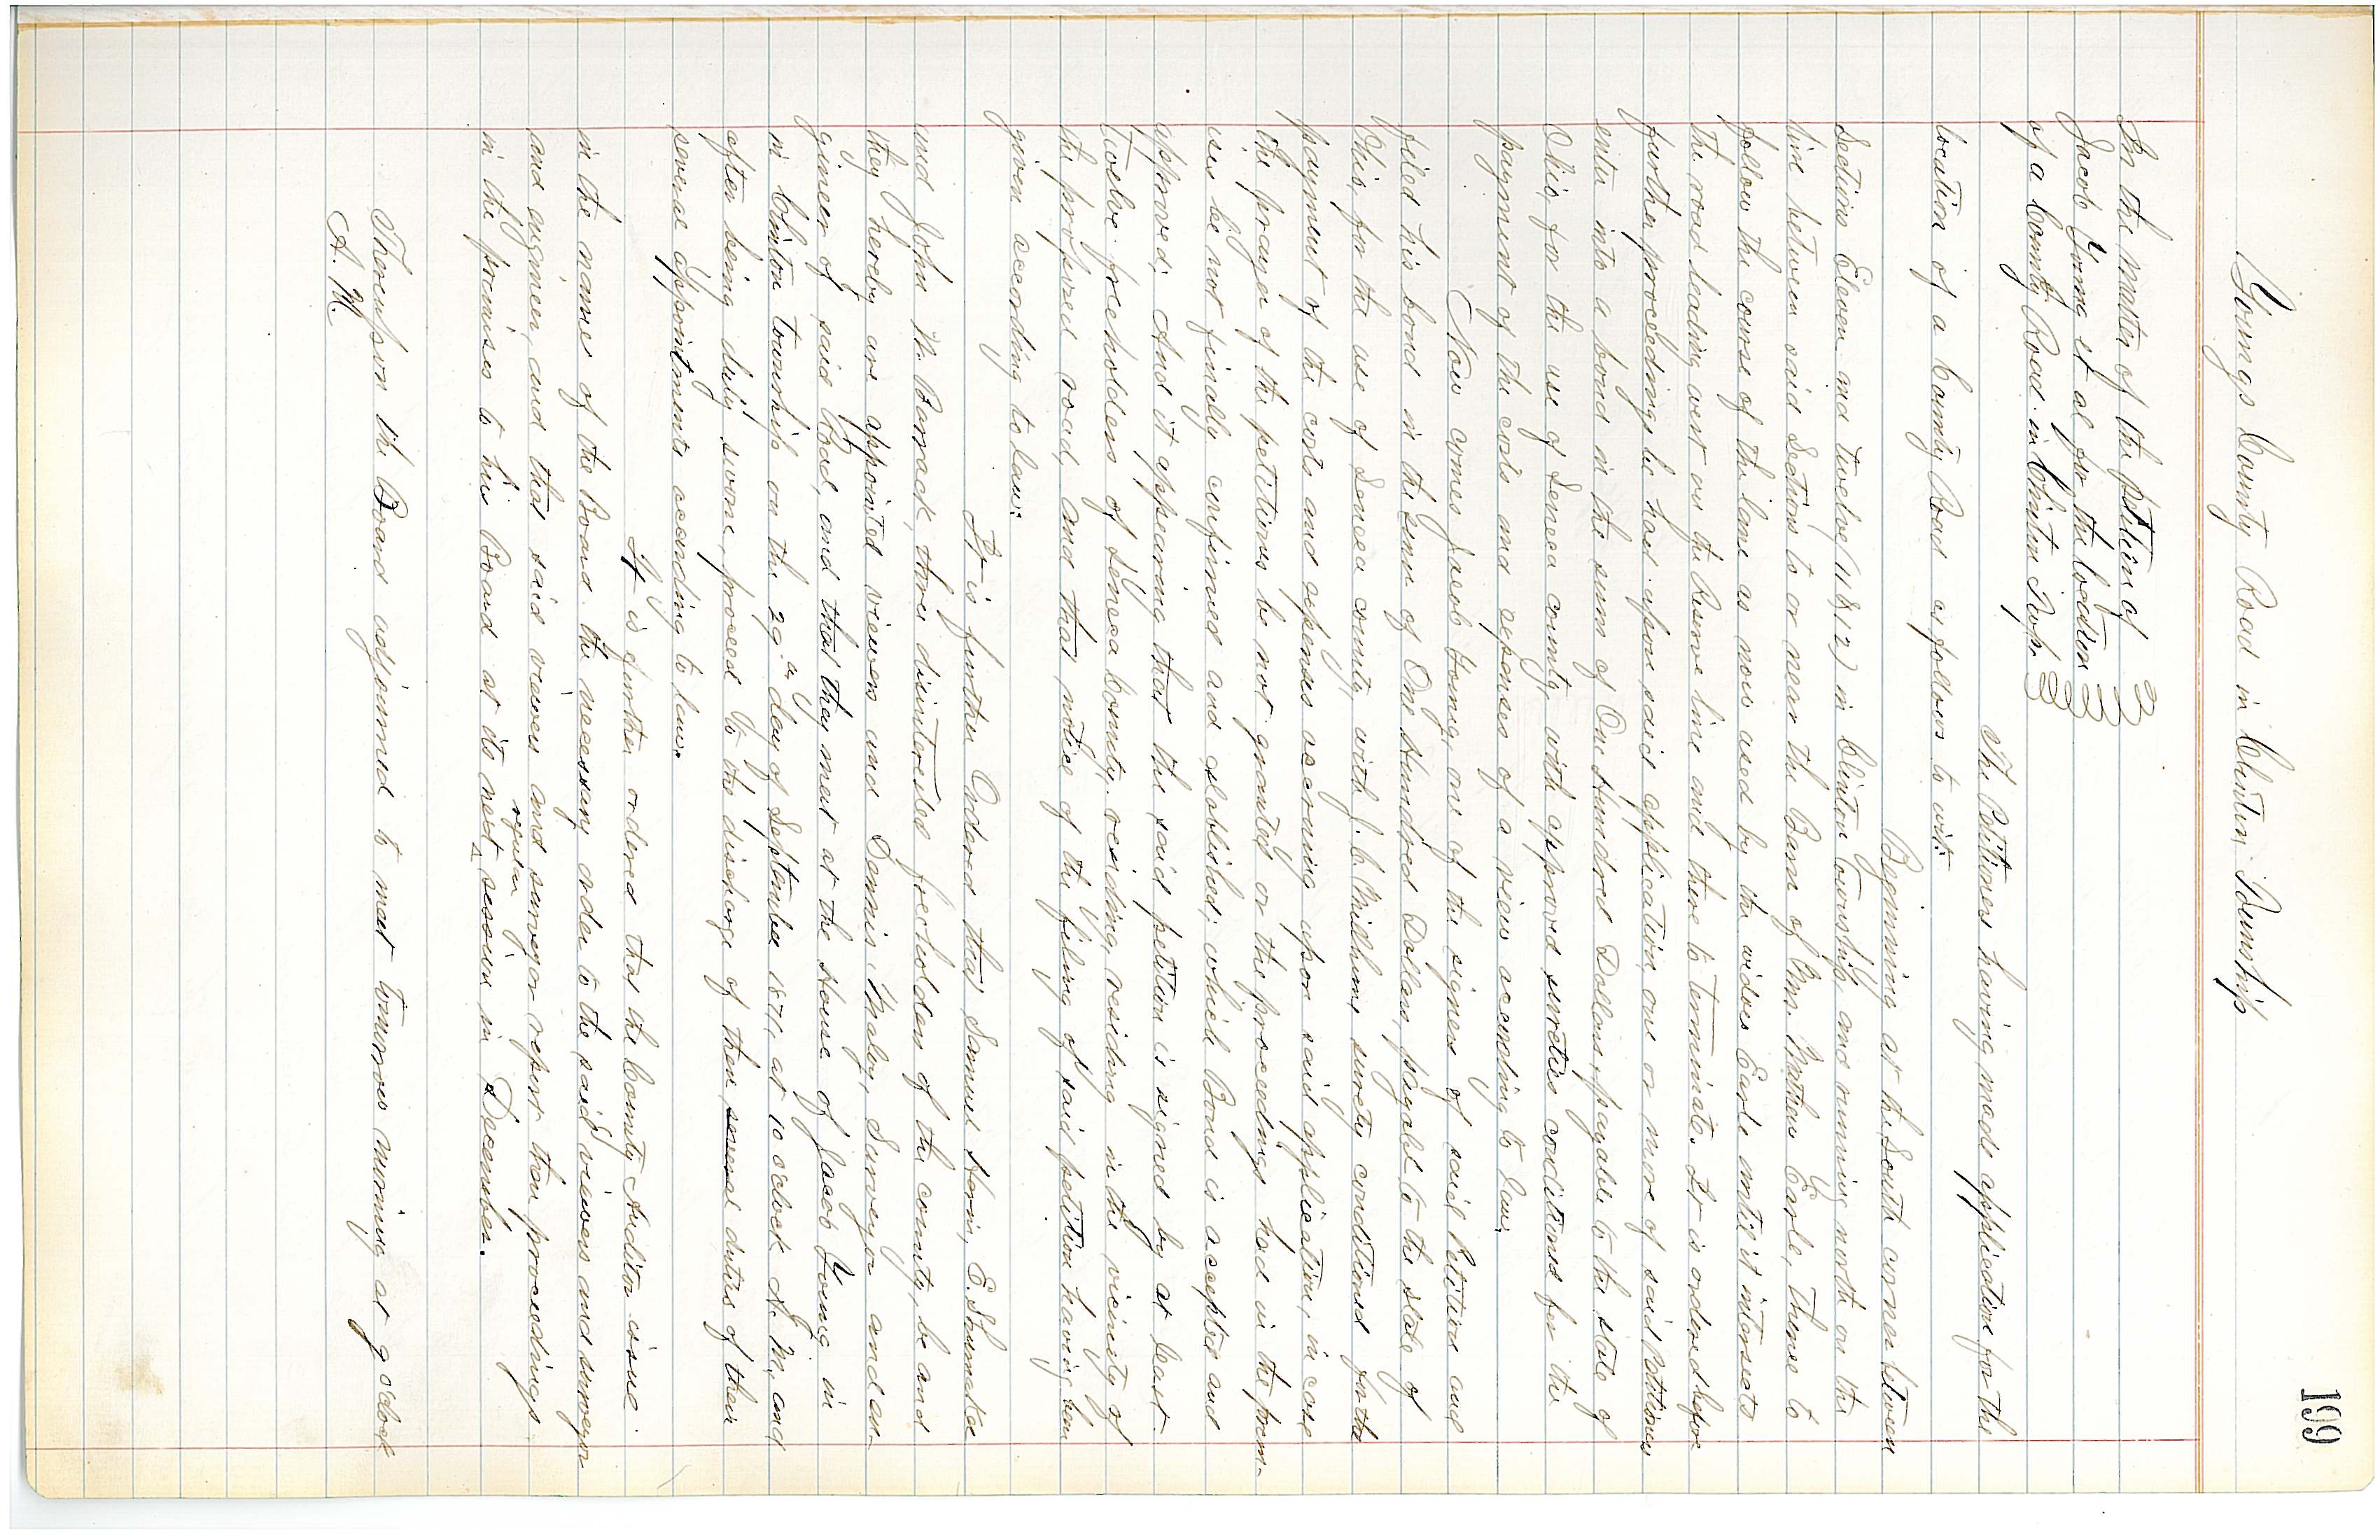 199
Youngs County Road in Clinton Township
In the matter of the petition of
Jacob Young et al for the location
of a County Road in Clinton Twp.
The Petitioners having made application for the
location of a County Road as follows to wit:
Beginning at the South corner between
Sections Eleven and Twelve (11 & 12) in Clinton Township and running north on the
line between said Sections to or near the Barn of Mrs. Earle, thence to
follow the course of the lane as now used by the widow Earle until it intersects
the road leading west on the Reserve line and there to terminate. It is ordered before
further proceedings be had upon said application one or more of said Petitioners
enter into a bond in the sum of One Hundred Dollars, payable to the State of
Ohio, for the use of Seneca county, with approved sureties conditioned for the
payment of the costs and expenses of a view according to law.
Now comes Jacob Young, one of the signers of said Petition and
filed his bond in the sum of One Hundred Dollars, payable to the State of
Ohio, for the use of Seneca county, with J. C. Milhime surety conditioned for the
payment of the costs and expenses accruing upon said application, in case
the prayer of the petitioners be not granted or the proceedings had in the prem-
ises be not finally confirmed and established; which Bond is accepted and
approved; And it appearing that the said petition is signed by at least
twelve freeholders of Seneca County, residing, residing in the vicinity of
the proposed road, and that notice of the filing of said petition having been
given according to law:
It is further Ordered that Samuel Horn, E. Shumaker
and John M. Barrack, three disinterested freeholders of the county, be and
they hereby are appointed viewers and Dennis Maley, Surveyor and en-
gineer of said Road, and that they meet at the House of Jacob Young in
in Clinton Township on the 29" day of September 1871, at 10 oclock A. M, and
after being duly sworn, proceed to the discharge of then several duties of their
several appointments according to law.
It is further ordered that the County Auditor issue
in the name of the Board the necessary order to the said viewers and surveyor
and engineer, and that said viewers and surveyor report their proceedings
in the premises to this Board at its next regular session in December.
Thereupon the Board adjourned to meet tomorrow morning at 9 oclock
A. M.